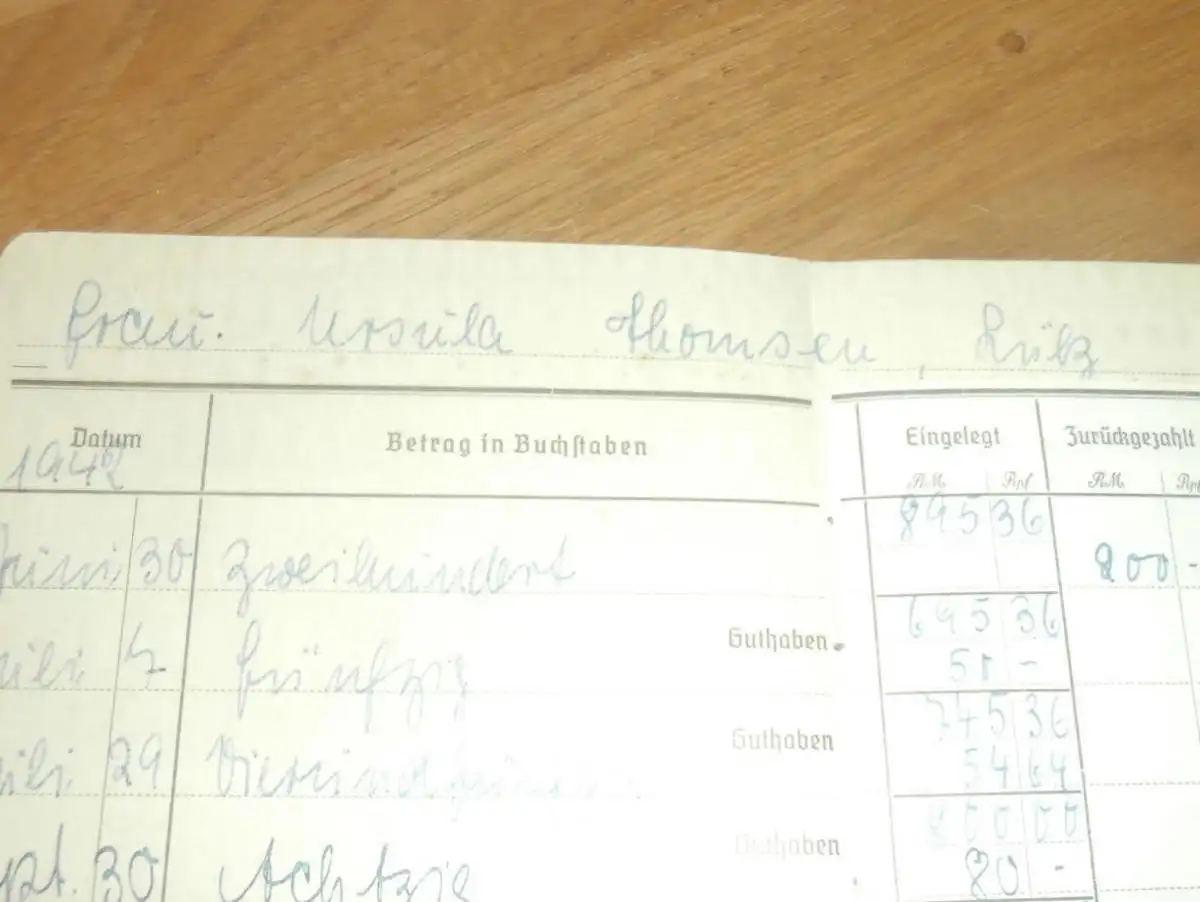 Frau. Ursula Thomsen, Lübz
Datum Betrag in Buchstaben Eingelegt Zurückgezahlt
1942 RM Rpf RM Rpf
895 36
Juni 30 Zweihundert 200 -
Guthaben 695 36
uli 7 Fünfzig 50 -
Guthaben 745 36
uli 29 54 64
Guthaben 800 00
pt. 30 Achtzig 80 -